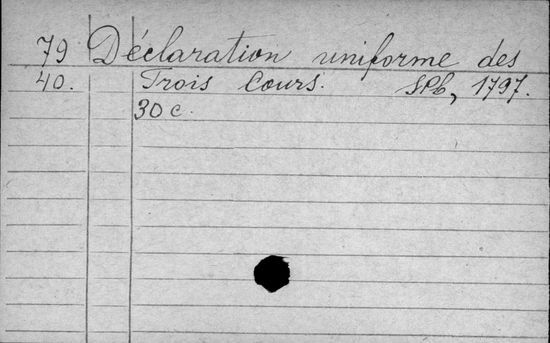 79 Déclaration uniforme des
40. Trois Cours. SPb, 1797.
30 c.